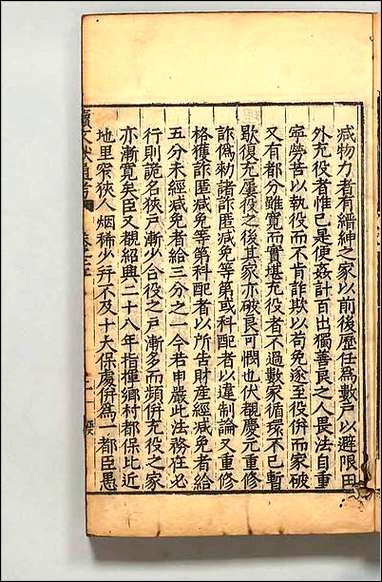 减物力者有縉紳之家以前後歴任爲數戸以避限田
外充役者惟已是便姦計百出獨善良之人畏法自重
寧勞苦以執役而不肯詐欺以苟免遂至役併而家破
又有都分雖寛而實堪充役者不過數家循環不已暫
歇復充屢役之後其家亦破良可憫也伏觀慶元重修
詐僞勑諸詐匿减免等第或科配者以違制論又重修
格獲詐匿减免等第科配者以所告財産經减免者給
五分未經减免者給三分之一今若申嚴此法務在必
行則詭名狹戸漸少合役之戸漸多而頻併充役之家
亦漸寛矣臣又觀紹興二十八年指揮鄉村都保比近
地里窄狹人烟稀少幷不及十大保處併爲一都臣愚
續文獻通考 卷之二十五